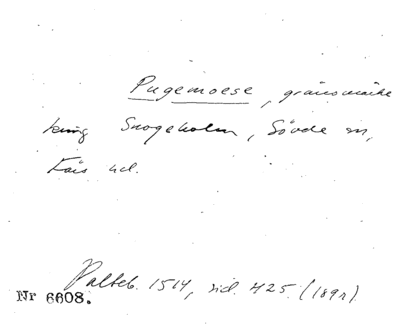 Pugemoese, gränsmärke
kring Snogeholm, Sövde sn,
Färs hd.
Palteb. 1514, sid. 425 (189r)
Nr 6608.